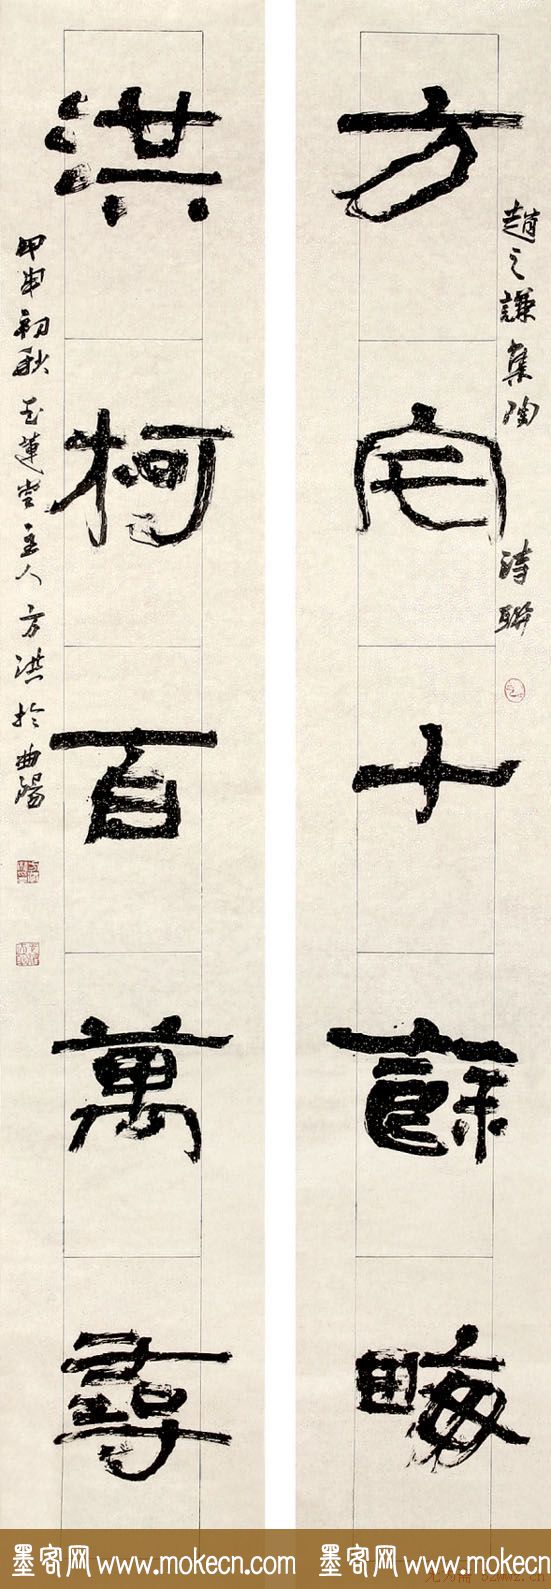 趙之謙集陶詩聯
方宅十餘畮
洪柯百萬尋
甲申初秋蓮堂主人方洪於曲陽
墨客网 www.mokecn.com
墨客网 www.mokecn.com